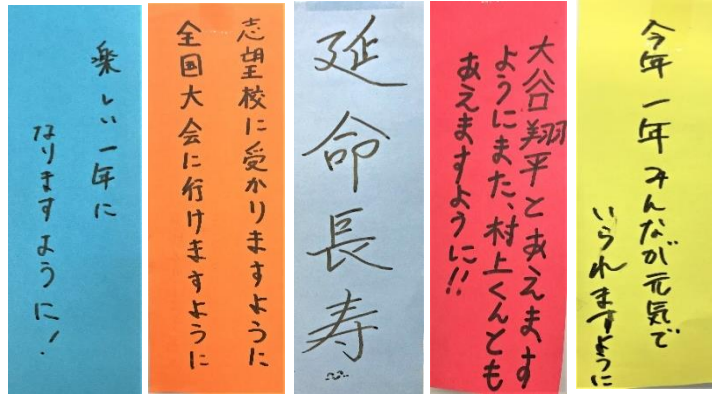 楽しい一年に
なりますように!
志望校に受かりますように
全国大会に行けますように
延命長寿
大谷翔平とあえます
ようにまた、村上くんとも
あえますように!!
今年一年みんなが元気で
いられますように